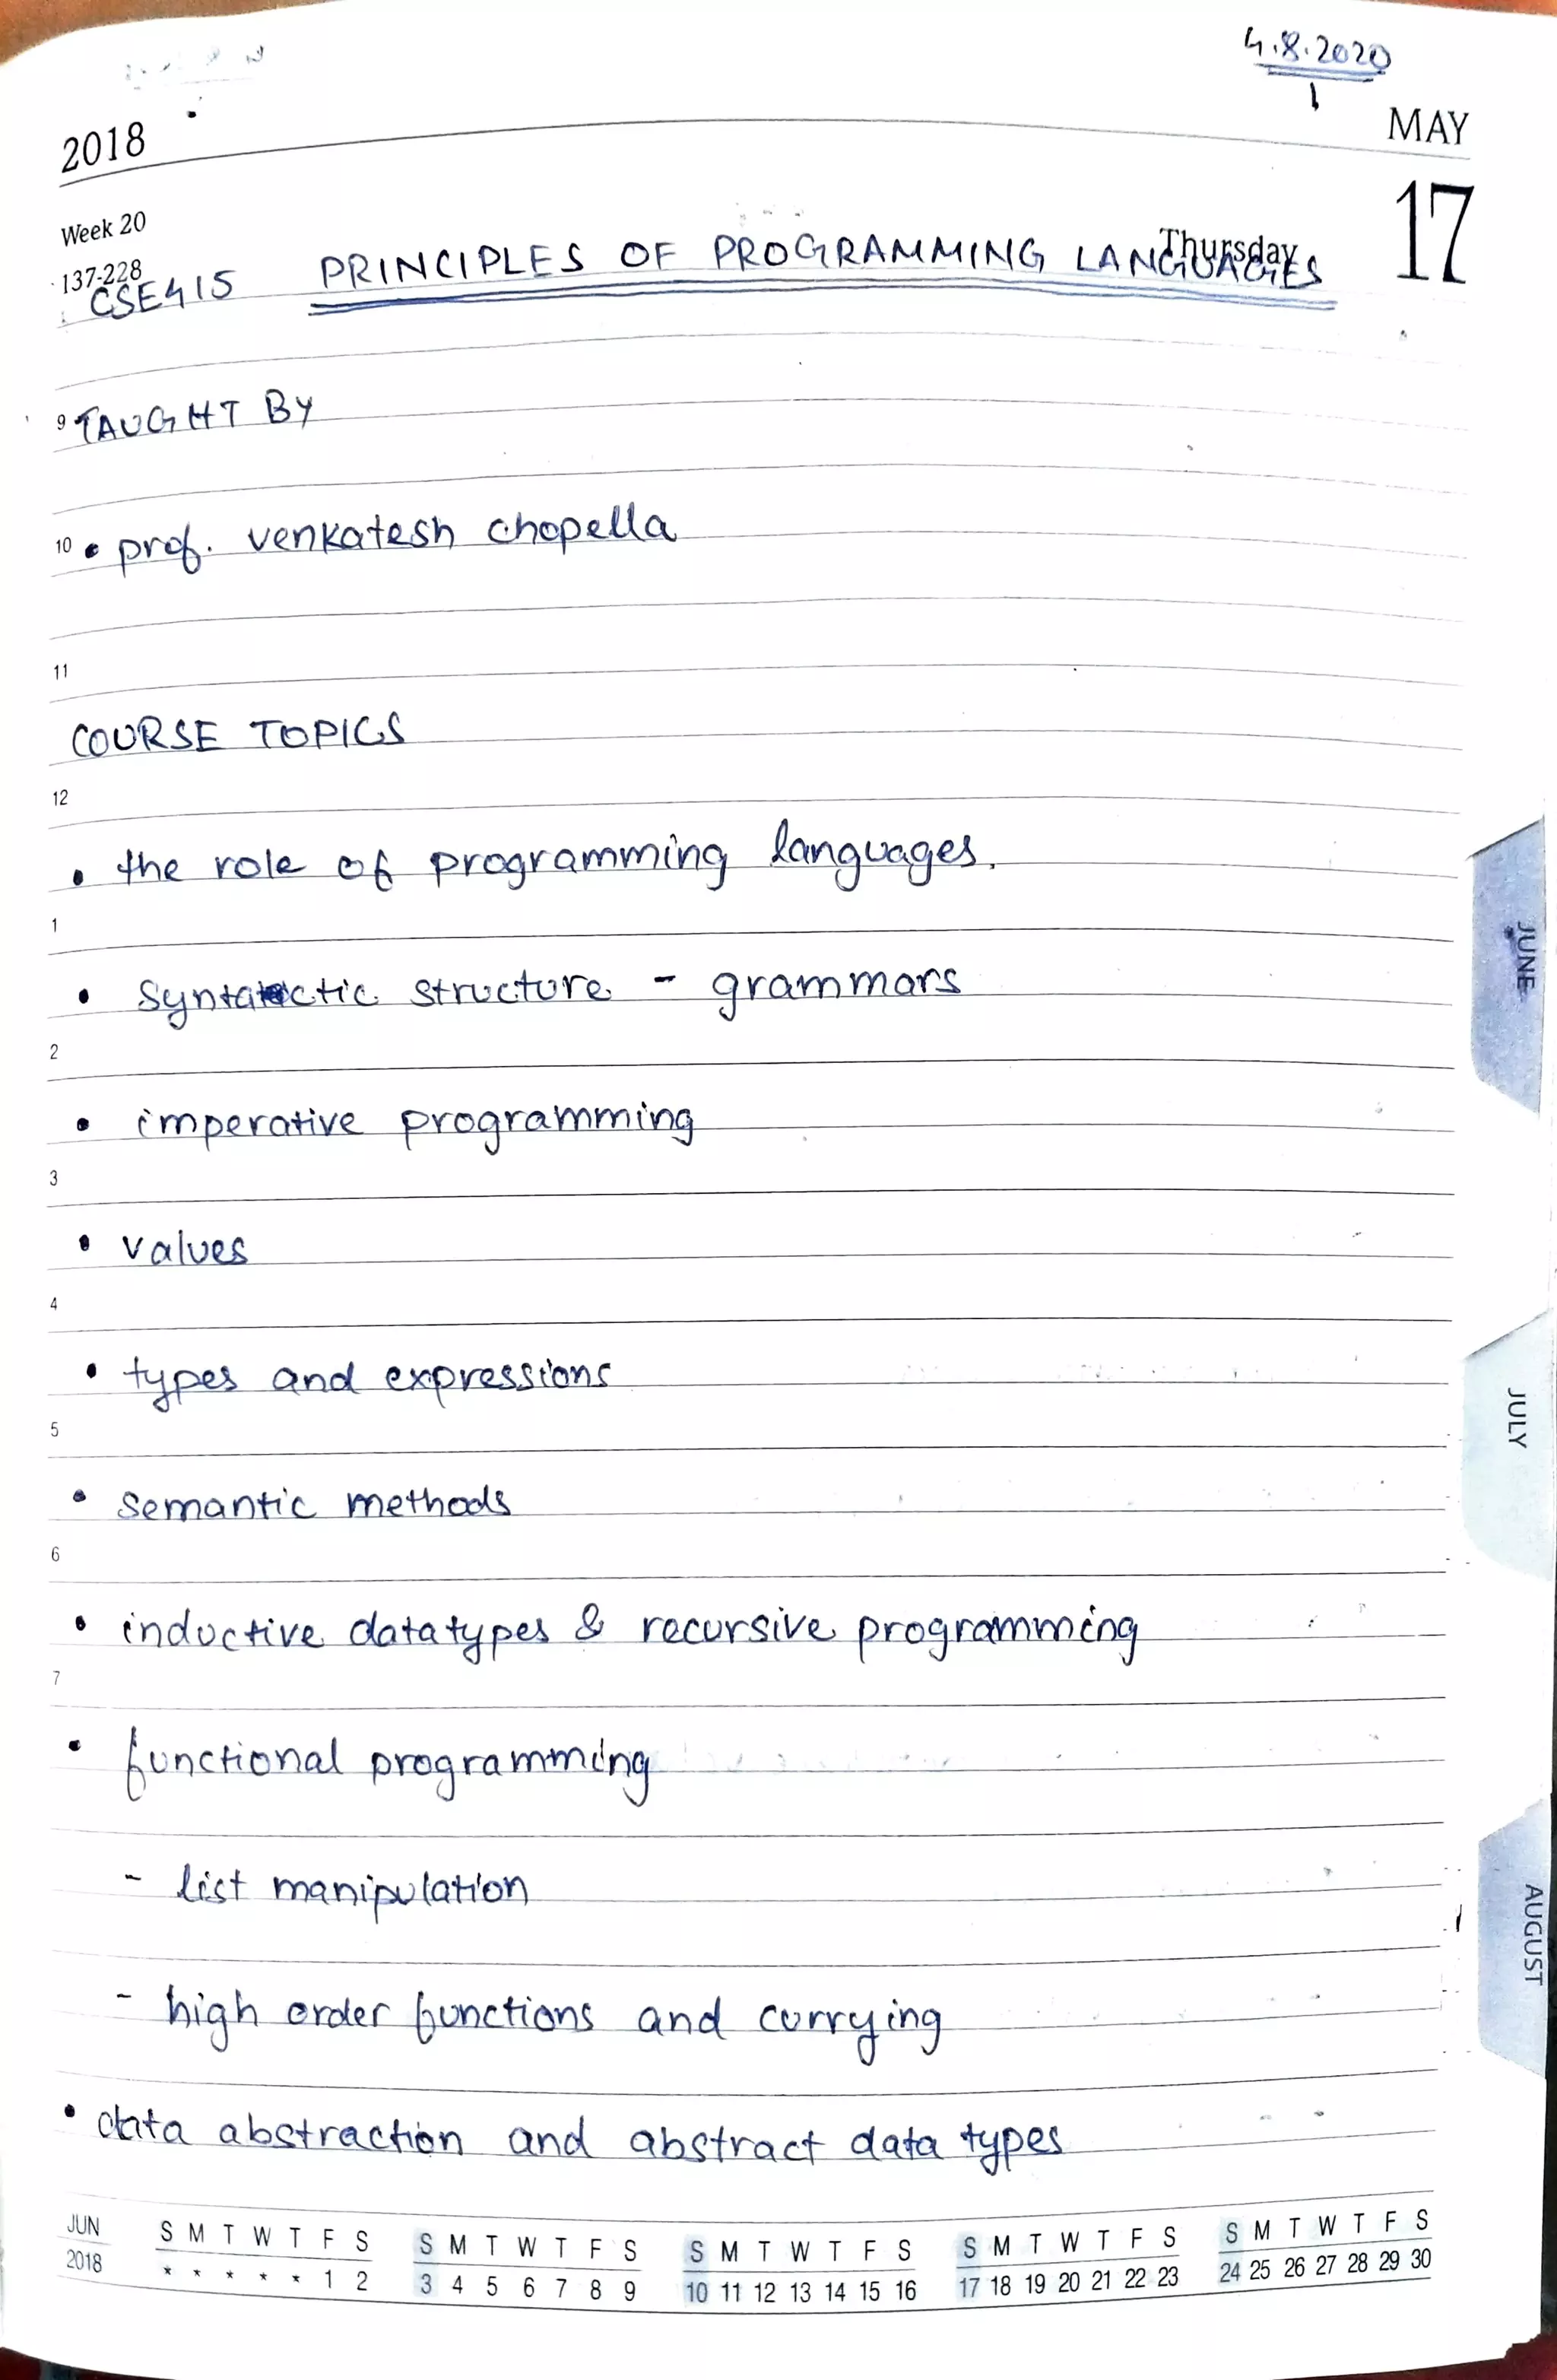 4.8.2020
2018
MAY
17
Week 20
Thursday
137-228
CSE415 PRINCIPLES OF PROGRAMMING LANGUAGES
9 TAUGHT BY
10 • prof. venkatesh chopella
11
COURSE TOPICS
12
• the role of programming languages.
1
• syntactic structure - grammars
2
• imperative programming
3
• values
4
• types and expressions
5
• semantic methods
6
• inductive datatypes & recursive programming
7
• functional programming
- list manipulation
- high order functions and currying
• data abstraction and abstract data types
JUN S M T W T F S S M T W T F S S M T W T F S S M T W T F S S M T W T F S
2018 * * * * * 1 2 3 4 5 6 7 8 9 10 11 12 13 14 15 16 17 18 19 20 21 22 23 24 25 26 27 28 29 30
JUNE
JULY
AUGUST